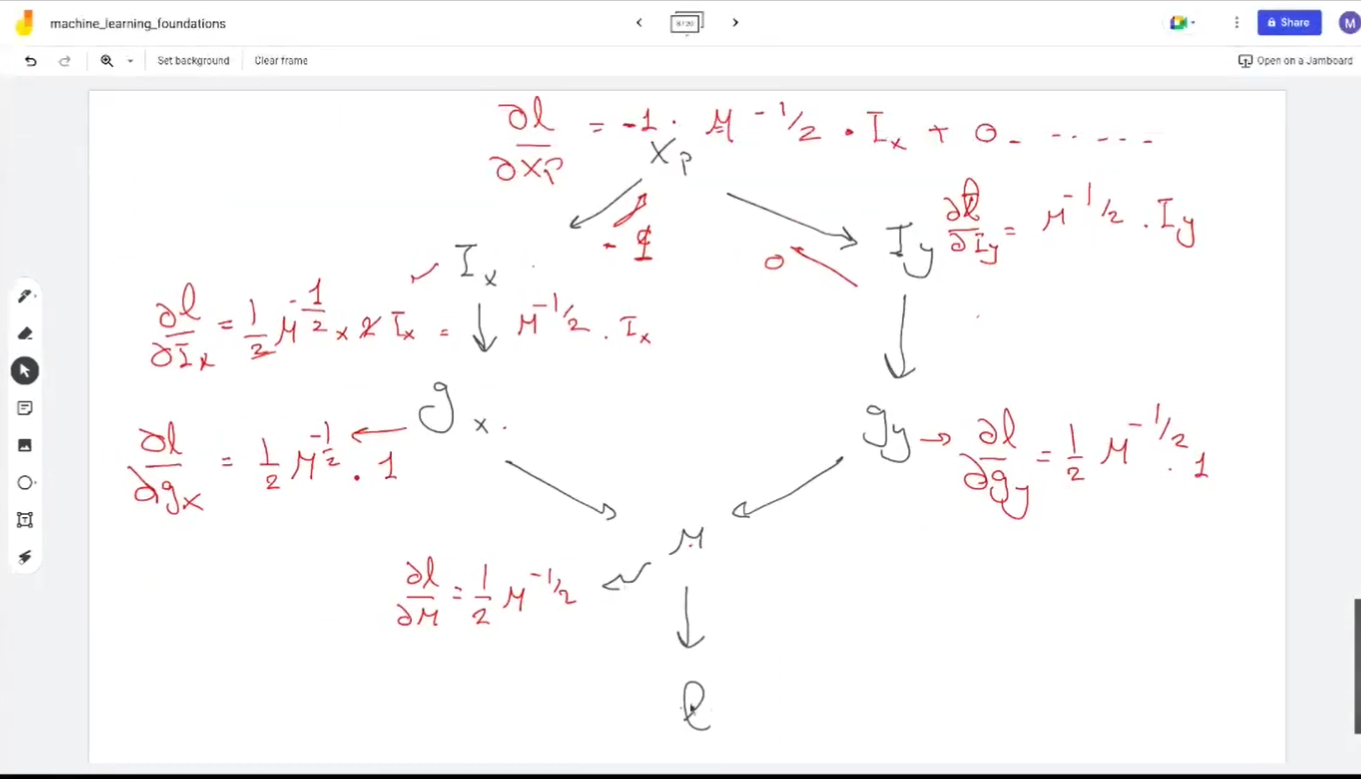 machine_learning_foundations
Share
M
Set background
Clear frame
Open on a Jamboard
∂l/∂xp = -1 · M^-1/2 · Ix + 0 - - - - - -
xp
-1
0
Ix
Iy
∂l/∂Iy = M^-1/2 · Iy
∂l/∂Ix = 1/2 M^-1/2 x 2 Ix = M^-1/2 . Ix
gx .
gy
∂l/∂gx = 1/2 M^-1/2 . 1
∂l/∂gy = 1/2 M^-1/2 . 1
M
∂l/∂M = 1/2 M^-1/2
l